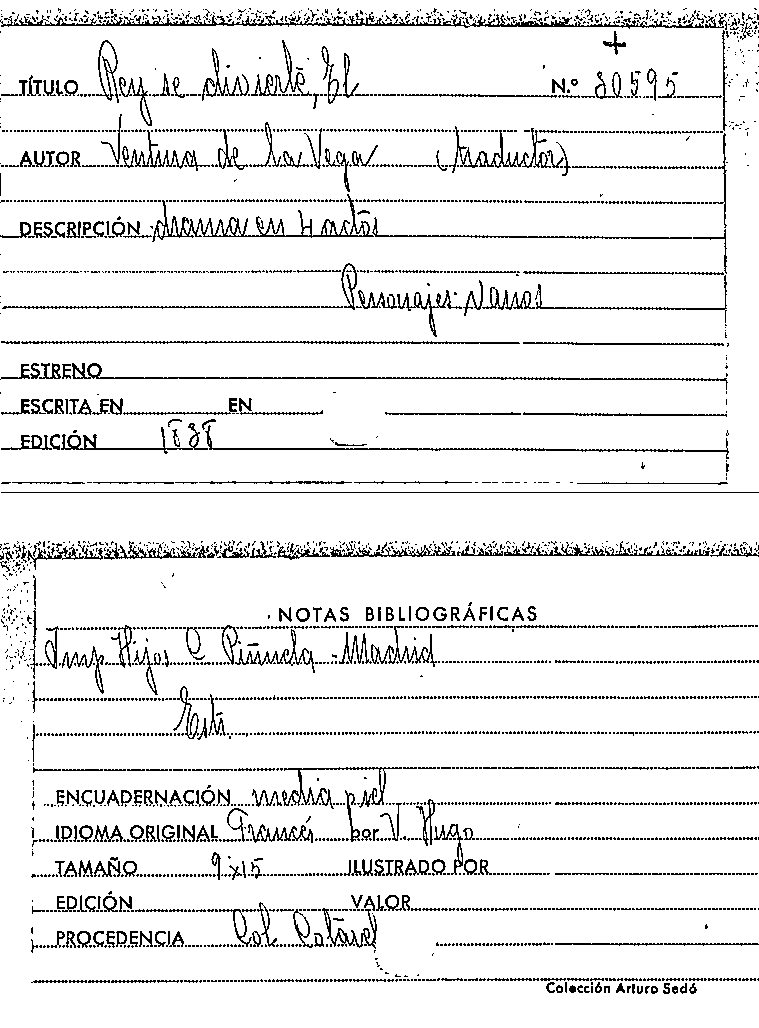 +
TÍTULO Rey se divierte, El N.º 80595
AUTOR Ventura de la Vega (traductor)
DESCRIPCIÓN drama en 4 actos
Personajes: varios
ESTRENO
ESCRITA EN EN
EDICIÓN 1838
NOTAS BIBLIOGRÁFICAS
Imp Hijos C Piñuela - Madrid
ENCUADERNACIÓN media piel
IDIOMA ORIGINAL Francés por V. Hugo
TAMAÑO 9x15 ILUSTRADO POR
EDICIÓN VALOR
PROCEDENCIA Col. Cotarel
Colección Arturo Sedó